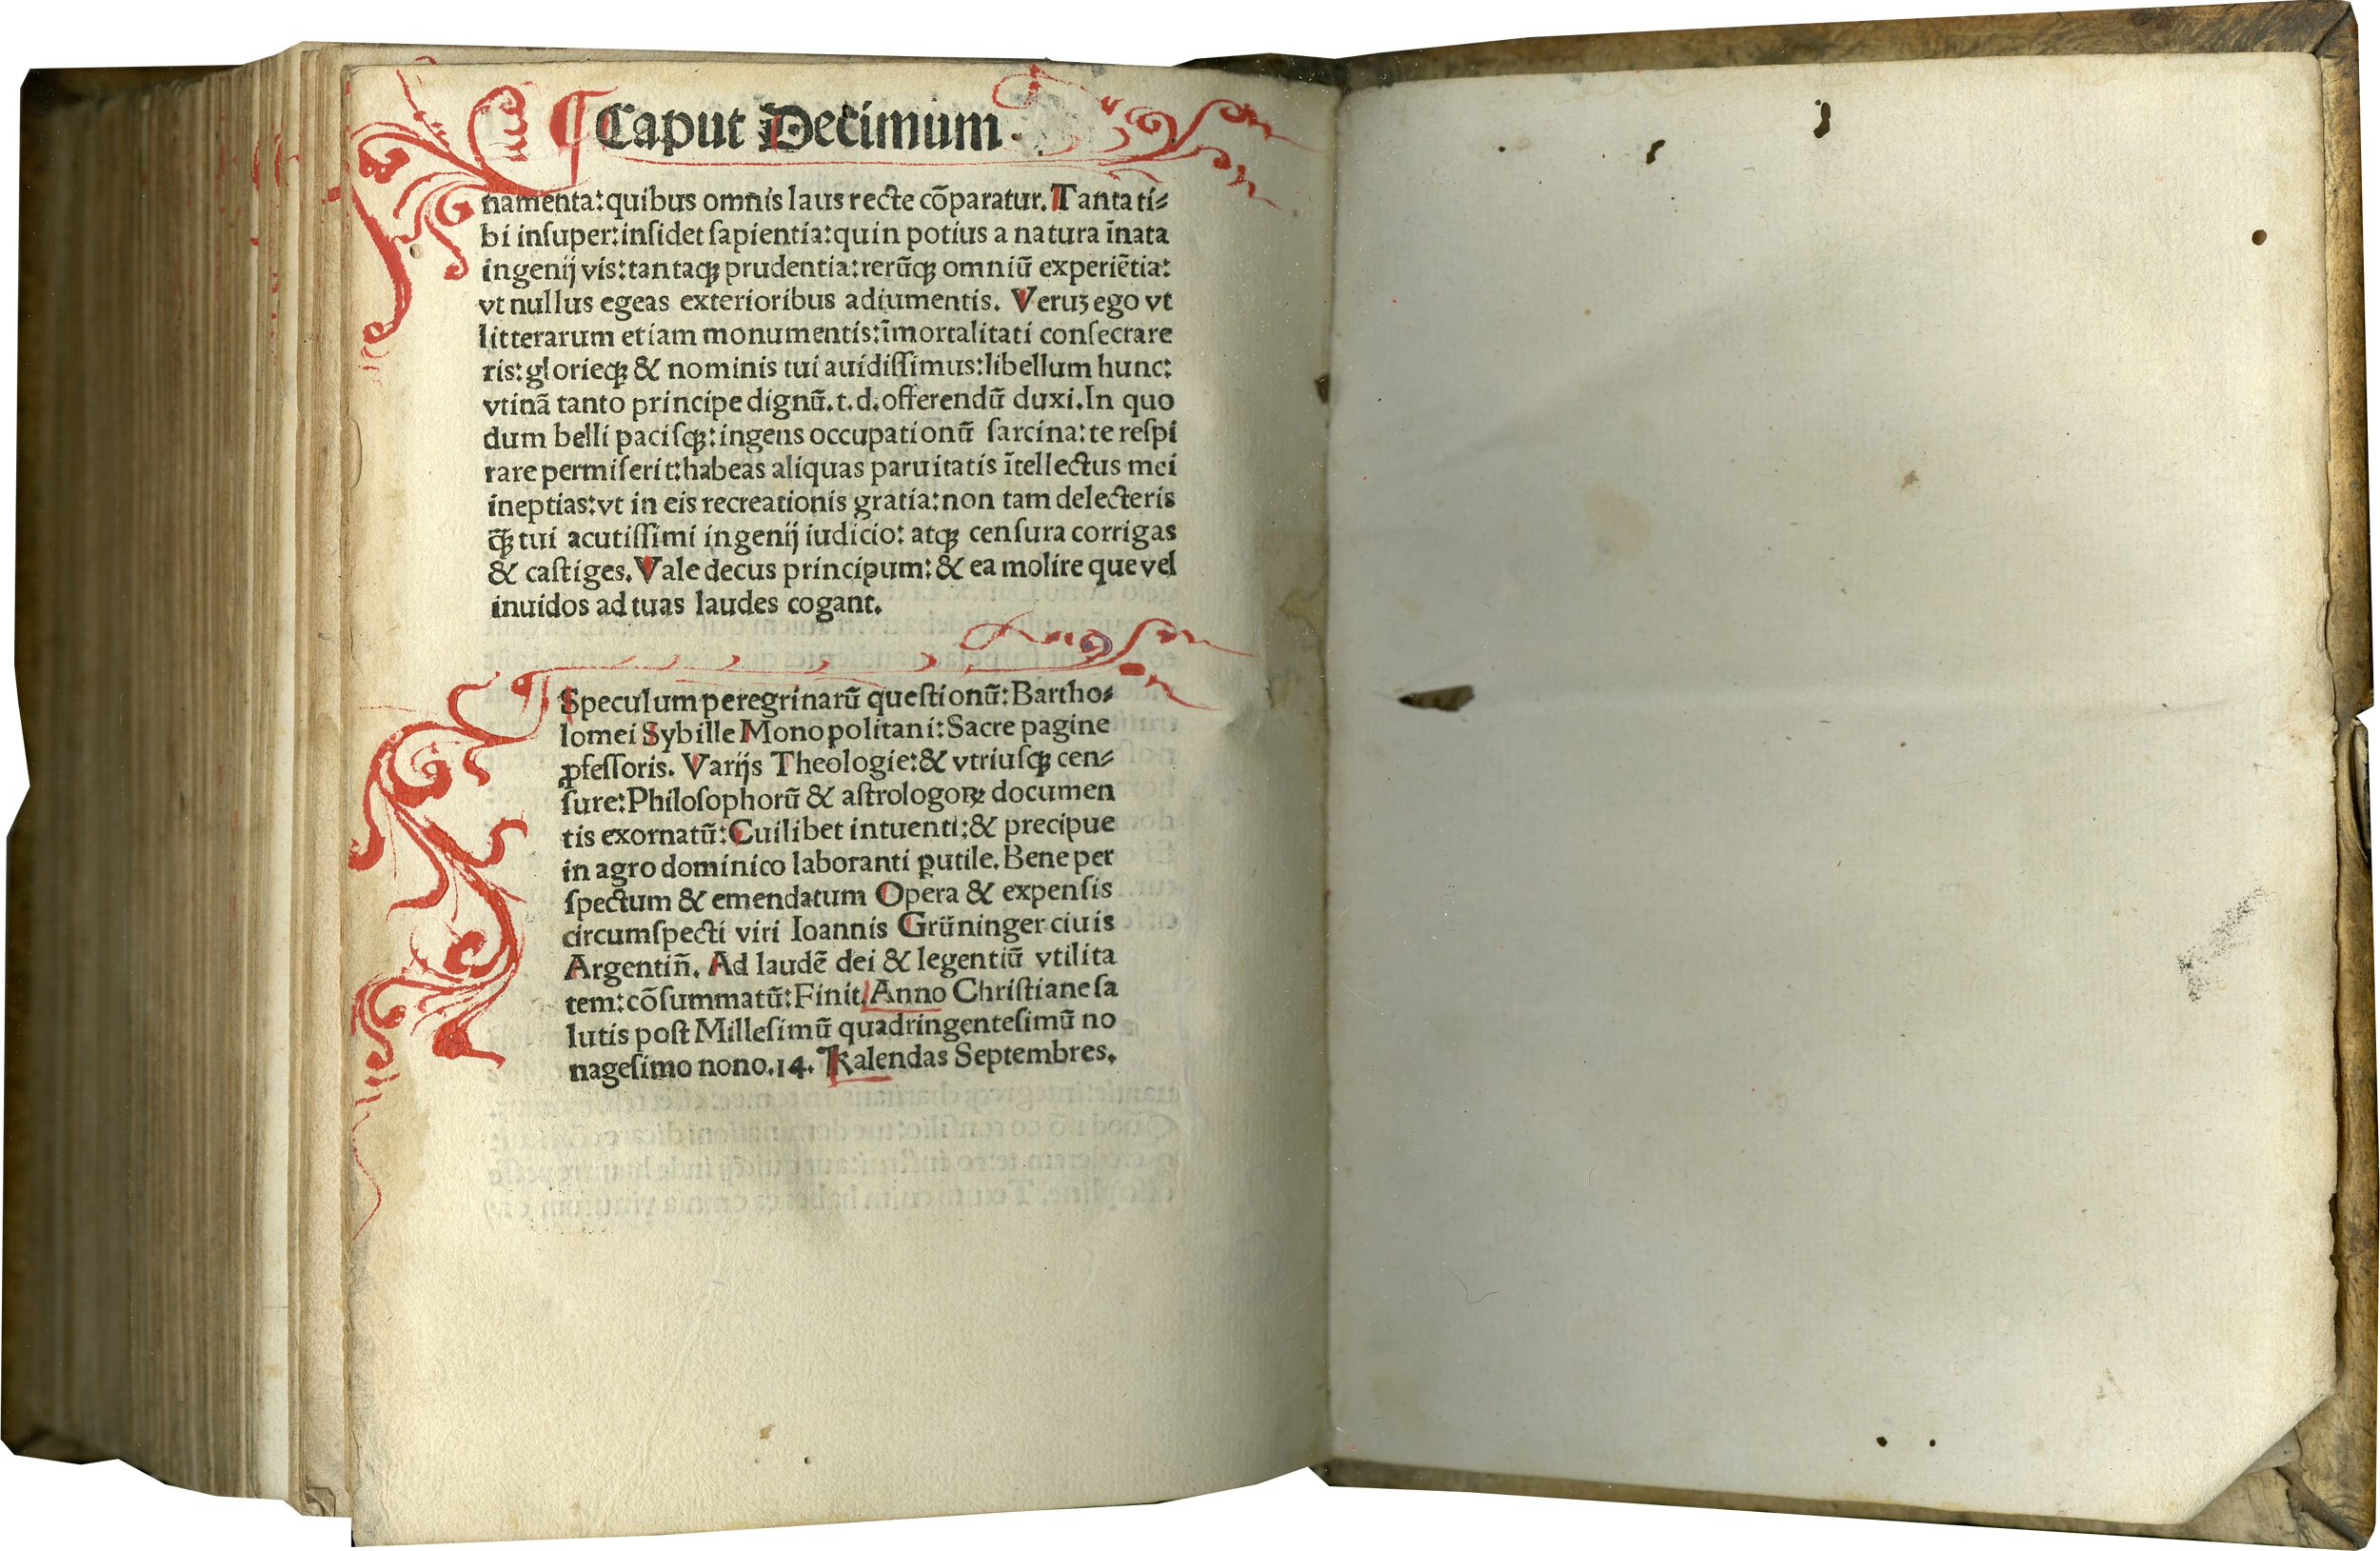 ¶ Caput Decimum.
namenta: quibus omnis laus recte cōparatur. Tanta ti⸗
bi inſuper: inſidet ſapientia: quin potius a natura īnata
ingenij vis: tantaqꝫ prudentia: rerūqꝫ omniū experiētia:
vt nullus egeas exterioribus adiumentis. Veruꝫ ego vt
litterarum etiam monumentis: īmortalitati conſecrare
ris: glorieqꝫ & nominis tui auidiſſimus: libellum hunc:
vtinā tanto principe dignū. t. d. offerendū duxi. In quo
dum belli paciſqꝫ: ingens occupationū ſarcina: te reſpi
rare permiſerit: habeas aliquas paruitatis ītellectus mei
ineptias: vt in eis recreationis gratia: non tam delecteris
q̄ꝫ tui acutiſſimi ingenij iudicio: atqꝫ cenſura corrigas
& caſtiges. Vale decus principum: & ea molire que vel
inuidos ad tuas laudes cogant.
¶ Speculum peregrinarū queſtionū: Bartho⸗
lomei Sybille Monopolitani: Sacre pagine
ꝓfeſſoris. Varijs Theologie: & vtriuſqꝫ cen⸗
ſure: Philoſophorū & aſtrologoꝝ documen
tis exornatū: Cuilibet intuenti: & precipue
in agro dominico laboranti ꝑutile. Bene per
ſpectum & emendatum Opera & expenſis
circumſpecti viri Ioannis Grüninger ciuis
Argentiñ. Ad laudē dei & legentiū vtilita
tem: cōſummatū: Finit. Anno Chriſtiane ſa
lutis poſt Milleſimū quadringenteſimū no
nageſimo nono. 14. Kalendas Septembres.